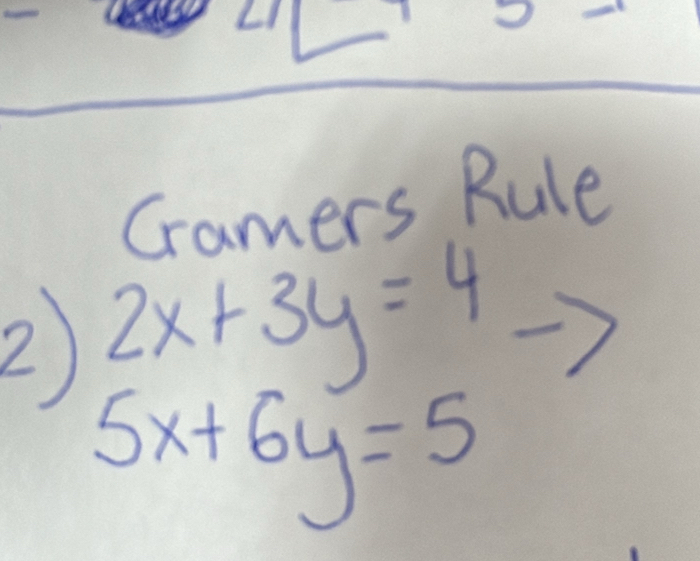 Cramers Rule
2) 2x + 3y = 4 ->
5x + 6y = 5